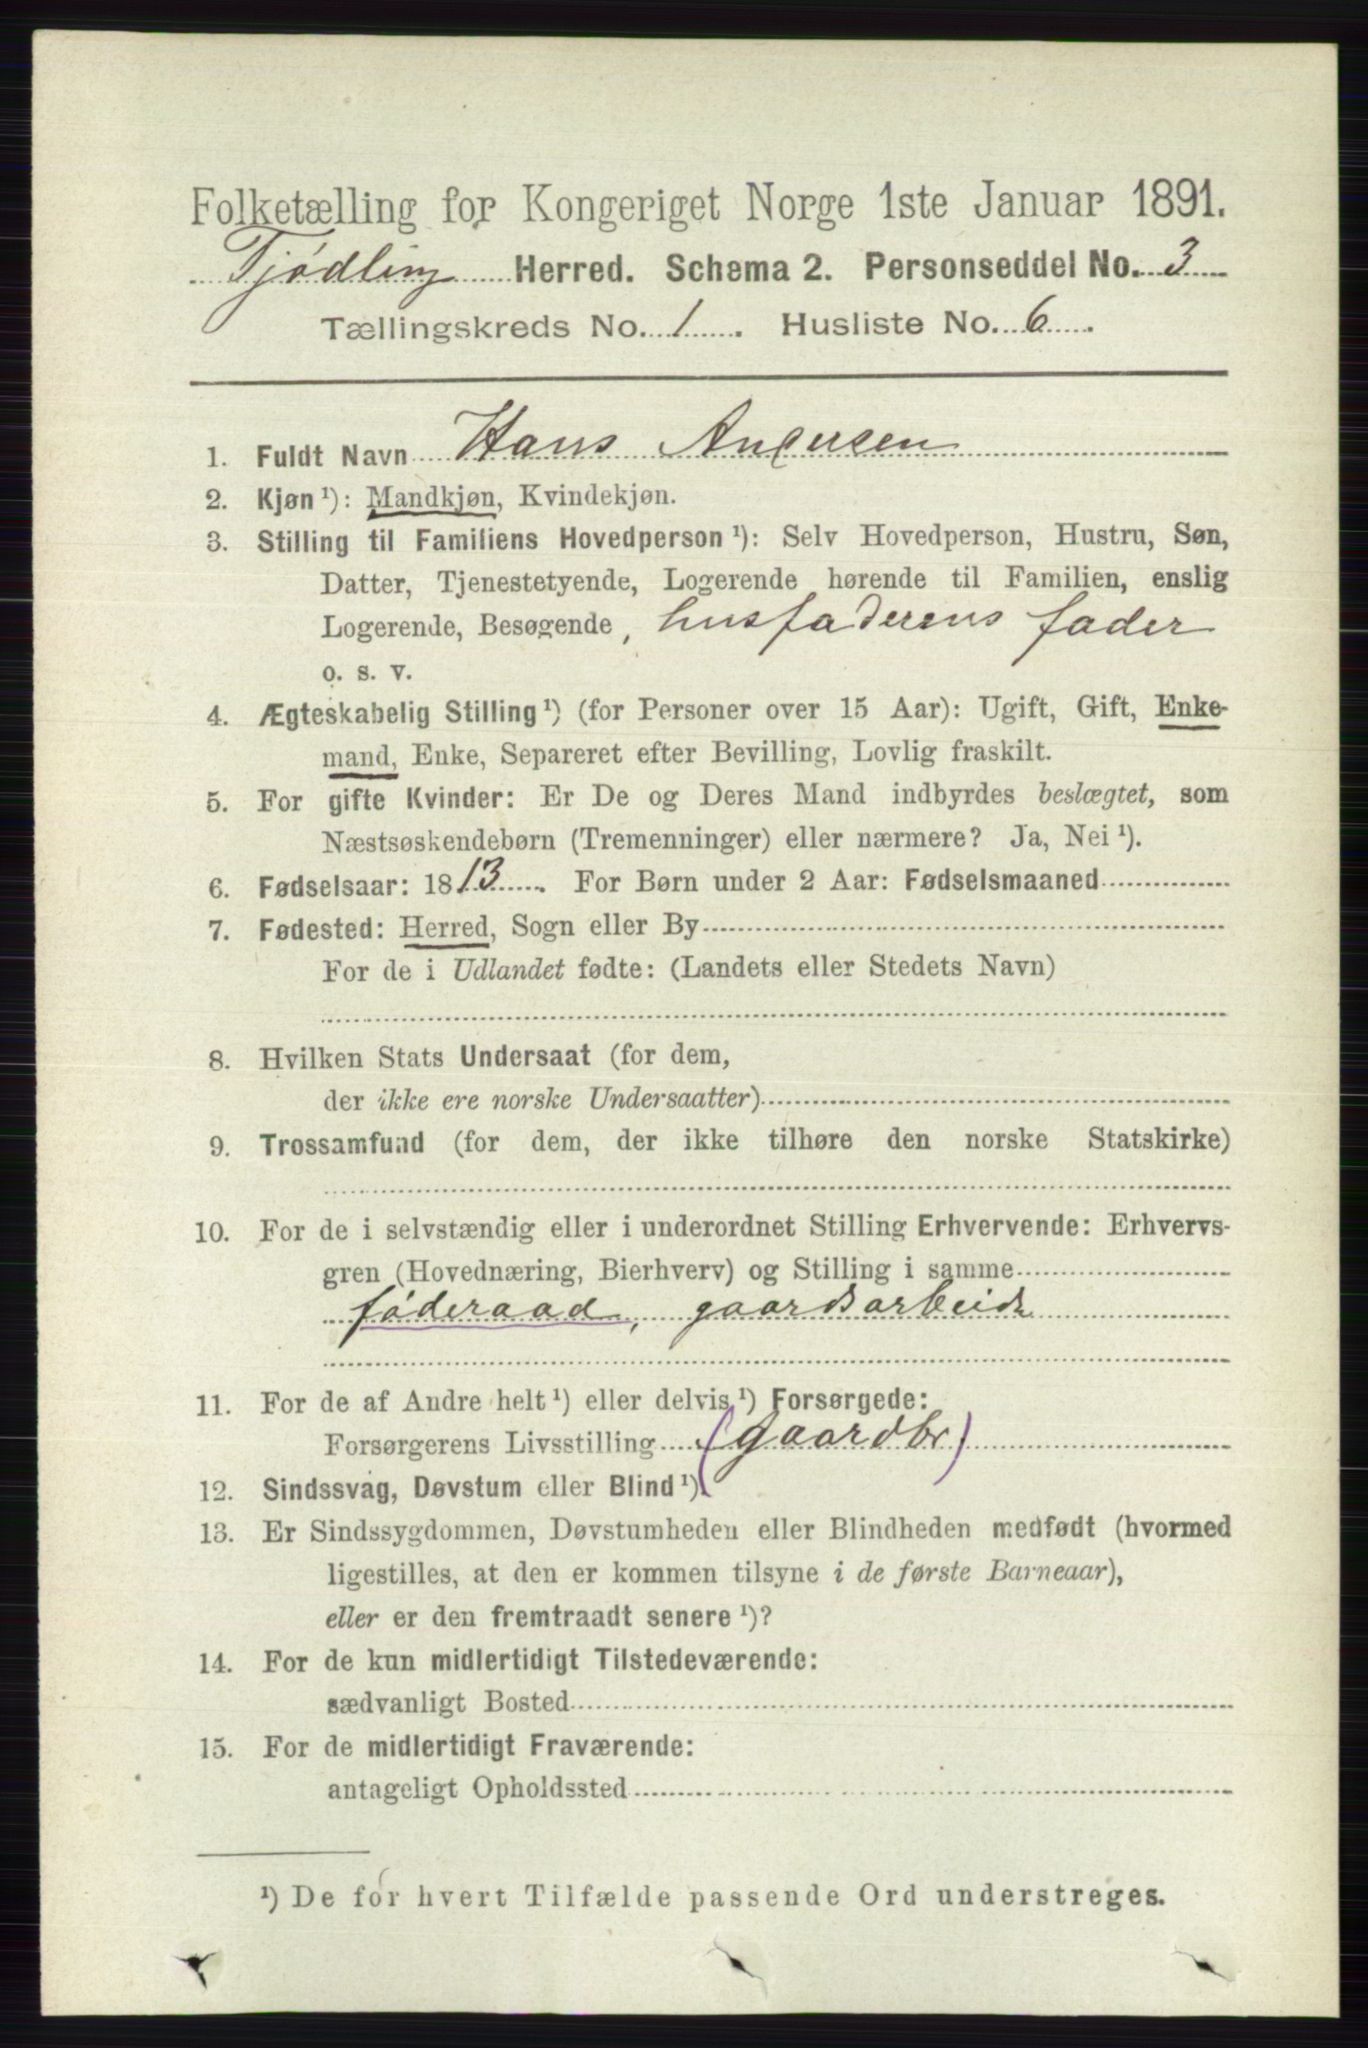 Folketælling for Kongeriget Norge 1ste Januar 1891.
Tjødling Herred. Schema 2. Personseddel No. 3
Tællingskreds No. 1. Husliste No. 6.
1. Fuldt Navn Hans Andersen
2. Kjøn ¹): Mandkjøn, Kvindekjøn.
3. Stilling til Familiens Hovedperson ¹): Selv Hovedperson, Hustru, Søn,
Datter, Tjenestetyende, Logerende hørende til Familien, enslig
Logerende, Besøgende, husfaderens fader
o. s. v.
4. Ægteskabelig Stilling ¹) (for Personer over 15 Aar): Ugift, Gift, Enke-
mand, Enke, Separeret efter Bevilling, Lovlig fraskilt.
5. For gifte Kvinder: Er De og Deres Mand indbyrdes beslægtet, som
Næstsøskendebørn (Tremenninger) eller nærmere? Ja, Nei ¹).
6. Fødselsaar: 1813. For Børn under 2 Aar: Fødselsmaaned
7. Fødested: Herred, Sogn eller By
For de i Udlandet fødte: (Landets eller Stedets Navn)
8. Hvilken Stats Undersaat (for dem,
der ikke ere norske Undersaatter)
9. Trossamfund (for dem, der ikke tilhøre den norske Statskirke)
10. For de i selvstændig eller i underordnet Stilling Erhvervende: Erhvervs-
gren (Hovednæring, Bierhverv) og Stilling i samme
føderaad, gaardsarbeide
11. For de af Andre helt ¹) eller delvis ¹) Forsørgede:
Forsørgerens Livsstilling (gaardbr)
12. Sindssvag, Døvstum eller Blind ¹).
13. Er Sindssygdommen, Døvstumheden eller Blindheden medfødt (hvormed
ligestilles, at den er kommen tilsyne i de første Barneaar),
eller er den fremtraadt senere ¹)?
14. For de kun midlertidigt Tilstedeværende:
sædvanligt Bosted
15. For de midlertidigt Fraværende:
antageligt Opholdssted
¹) De for hvert Tilfælde passende Ord understreges.